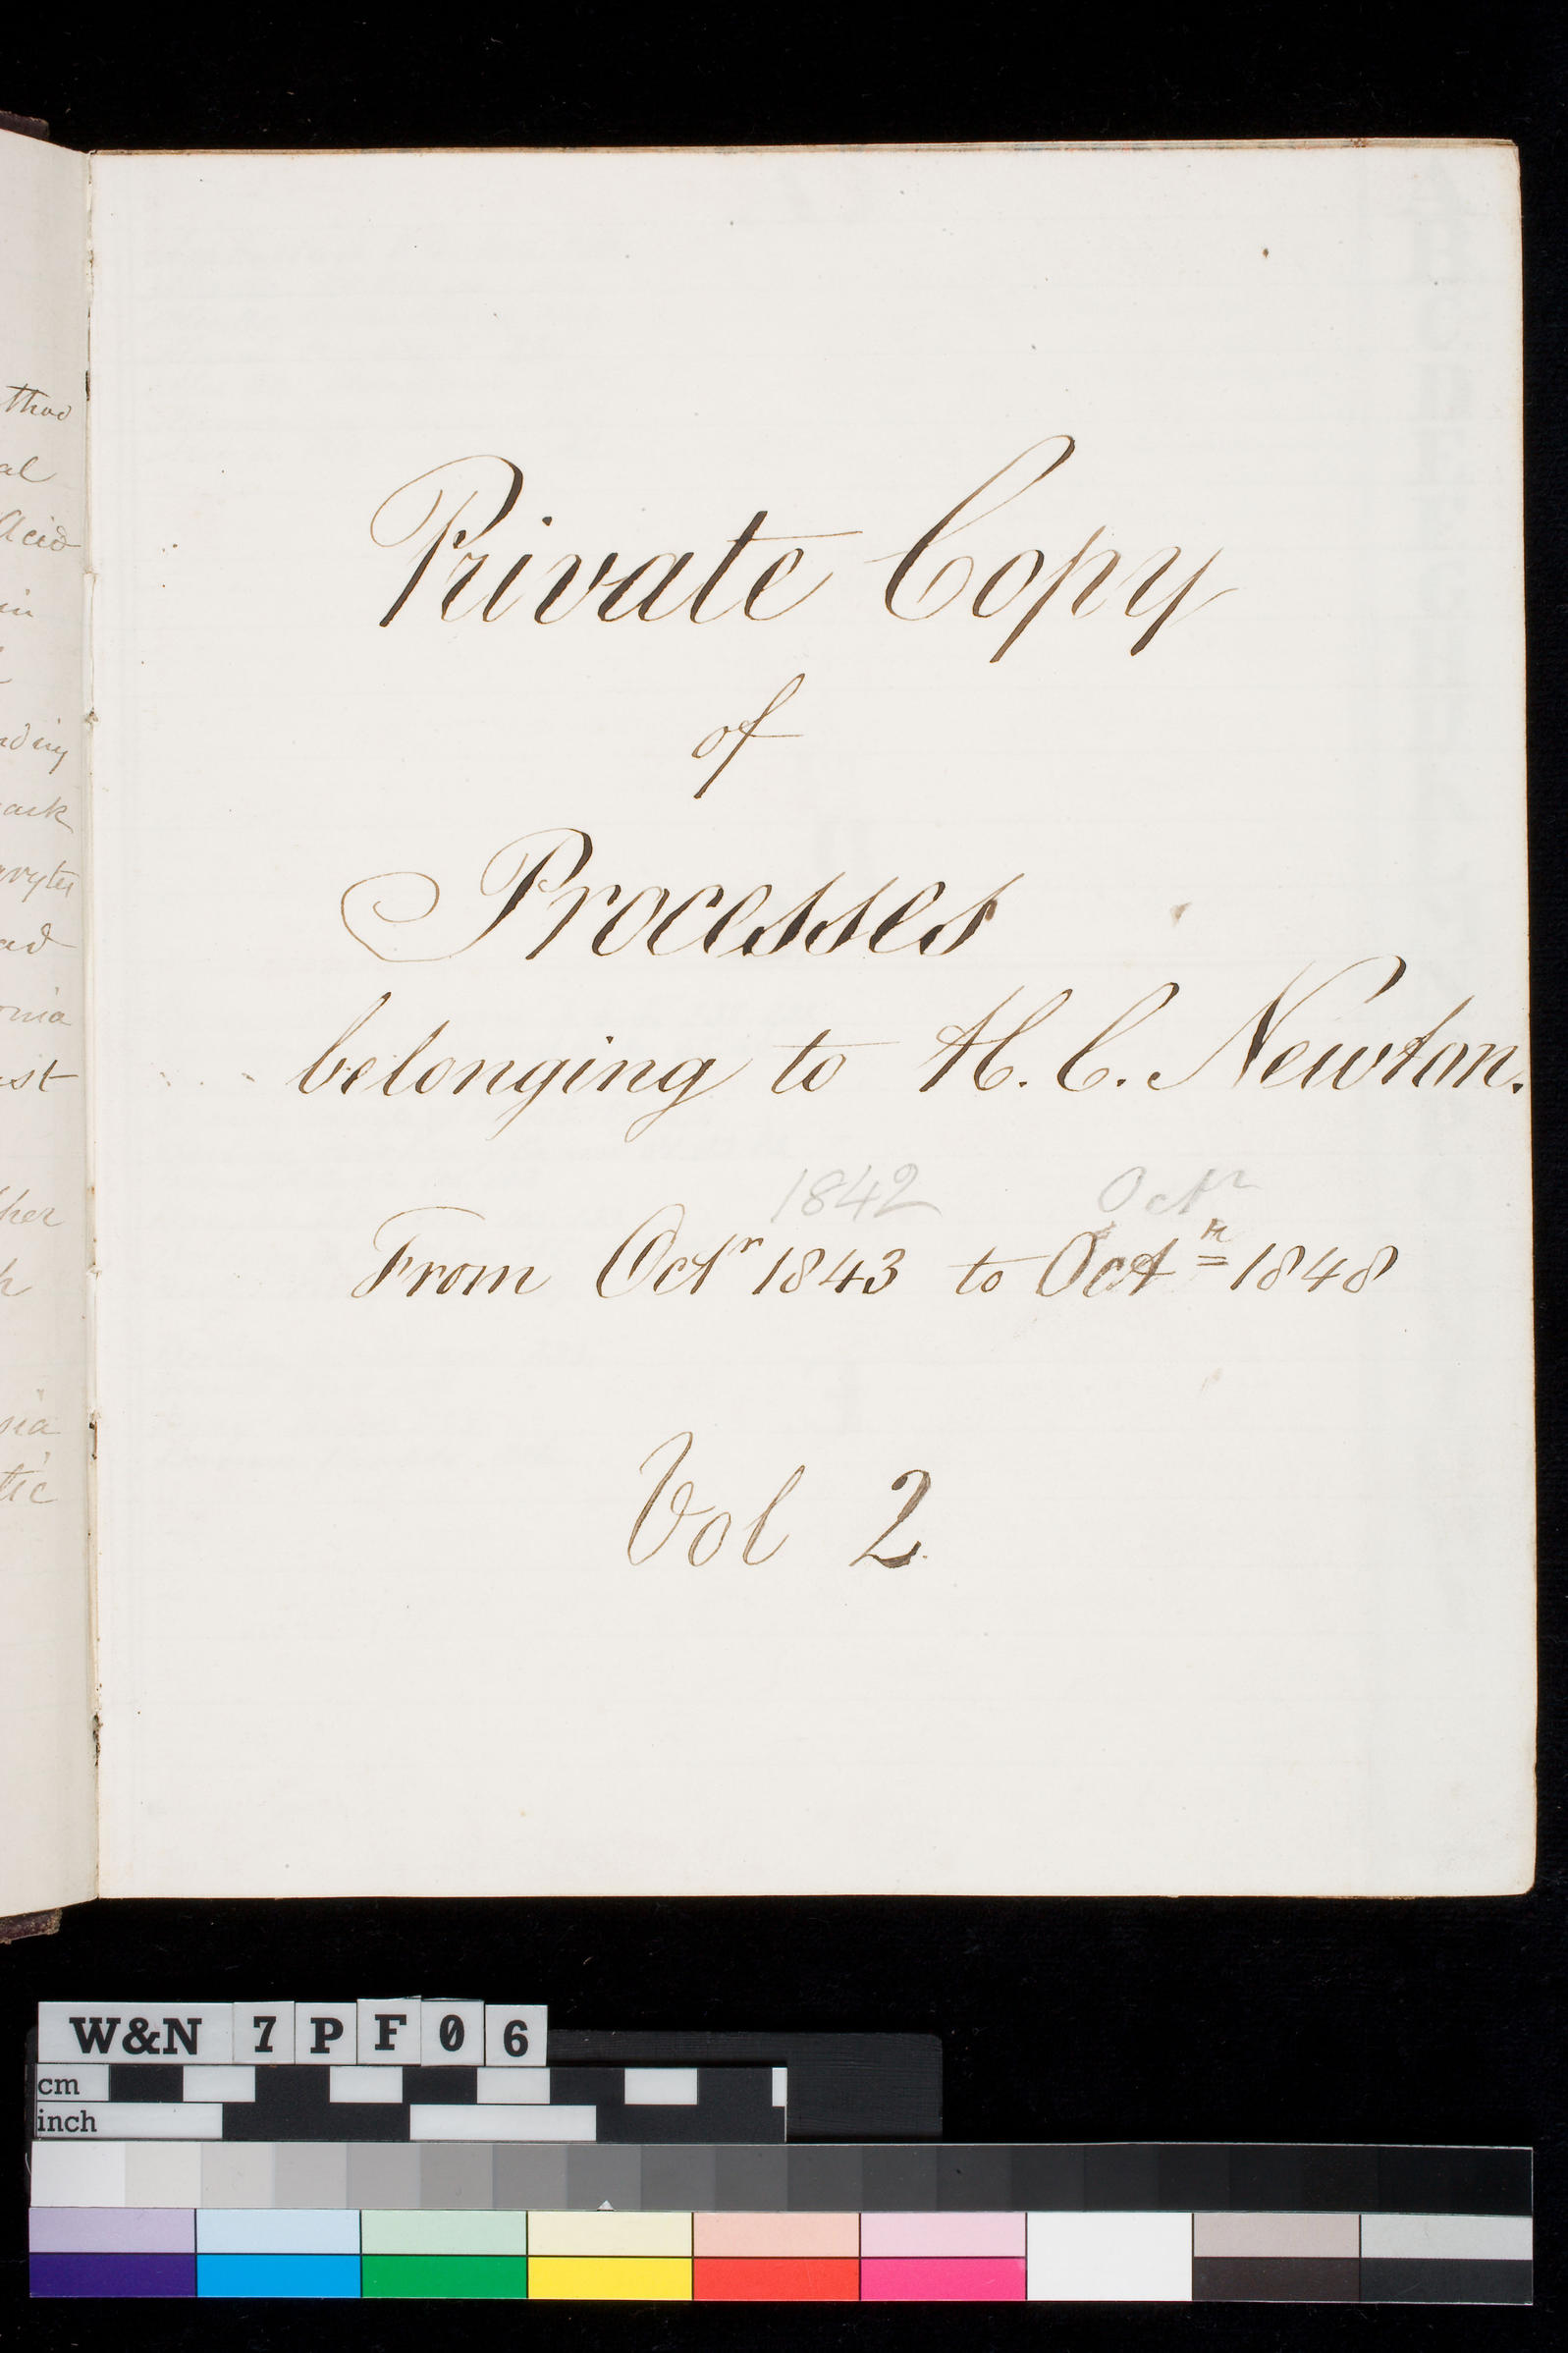 thod
al
Acid
in
ading
ask
aryter
ad
onia
ist
ther
h
sia
tic
Private Copy
of
Processes
belonging to H. C. Newton.
1842 Octr
From Octr 1843 to Octr 1848
Vol 2.
W&N 7 P F 0 6
cm
inch